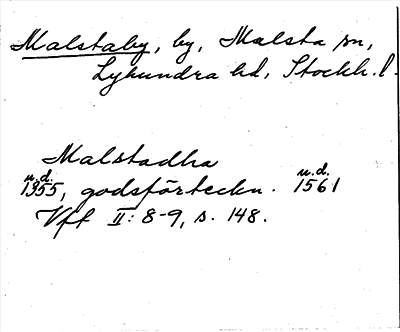 Malstaby, by, Malsta sn,
Lyhundra hd, Stockh. l.
Malstadha
n.d. n.d.
1355, godsförteckn. 1561
Vff II: 8-9, s. 148.